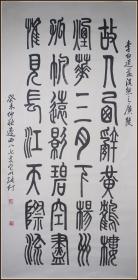 李白送孟浩然之廣陵
故人西辭黃鶴樓
煙華三月下揚州
孤帆遠影碧空盡
惟見長江天際流
癸未仲秋